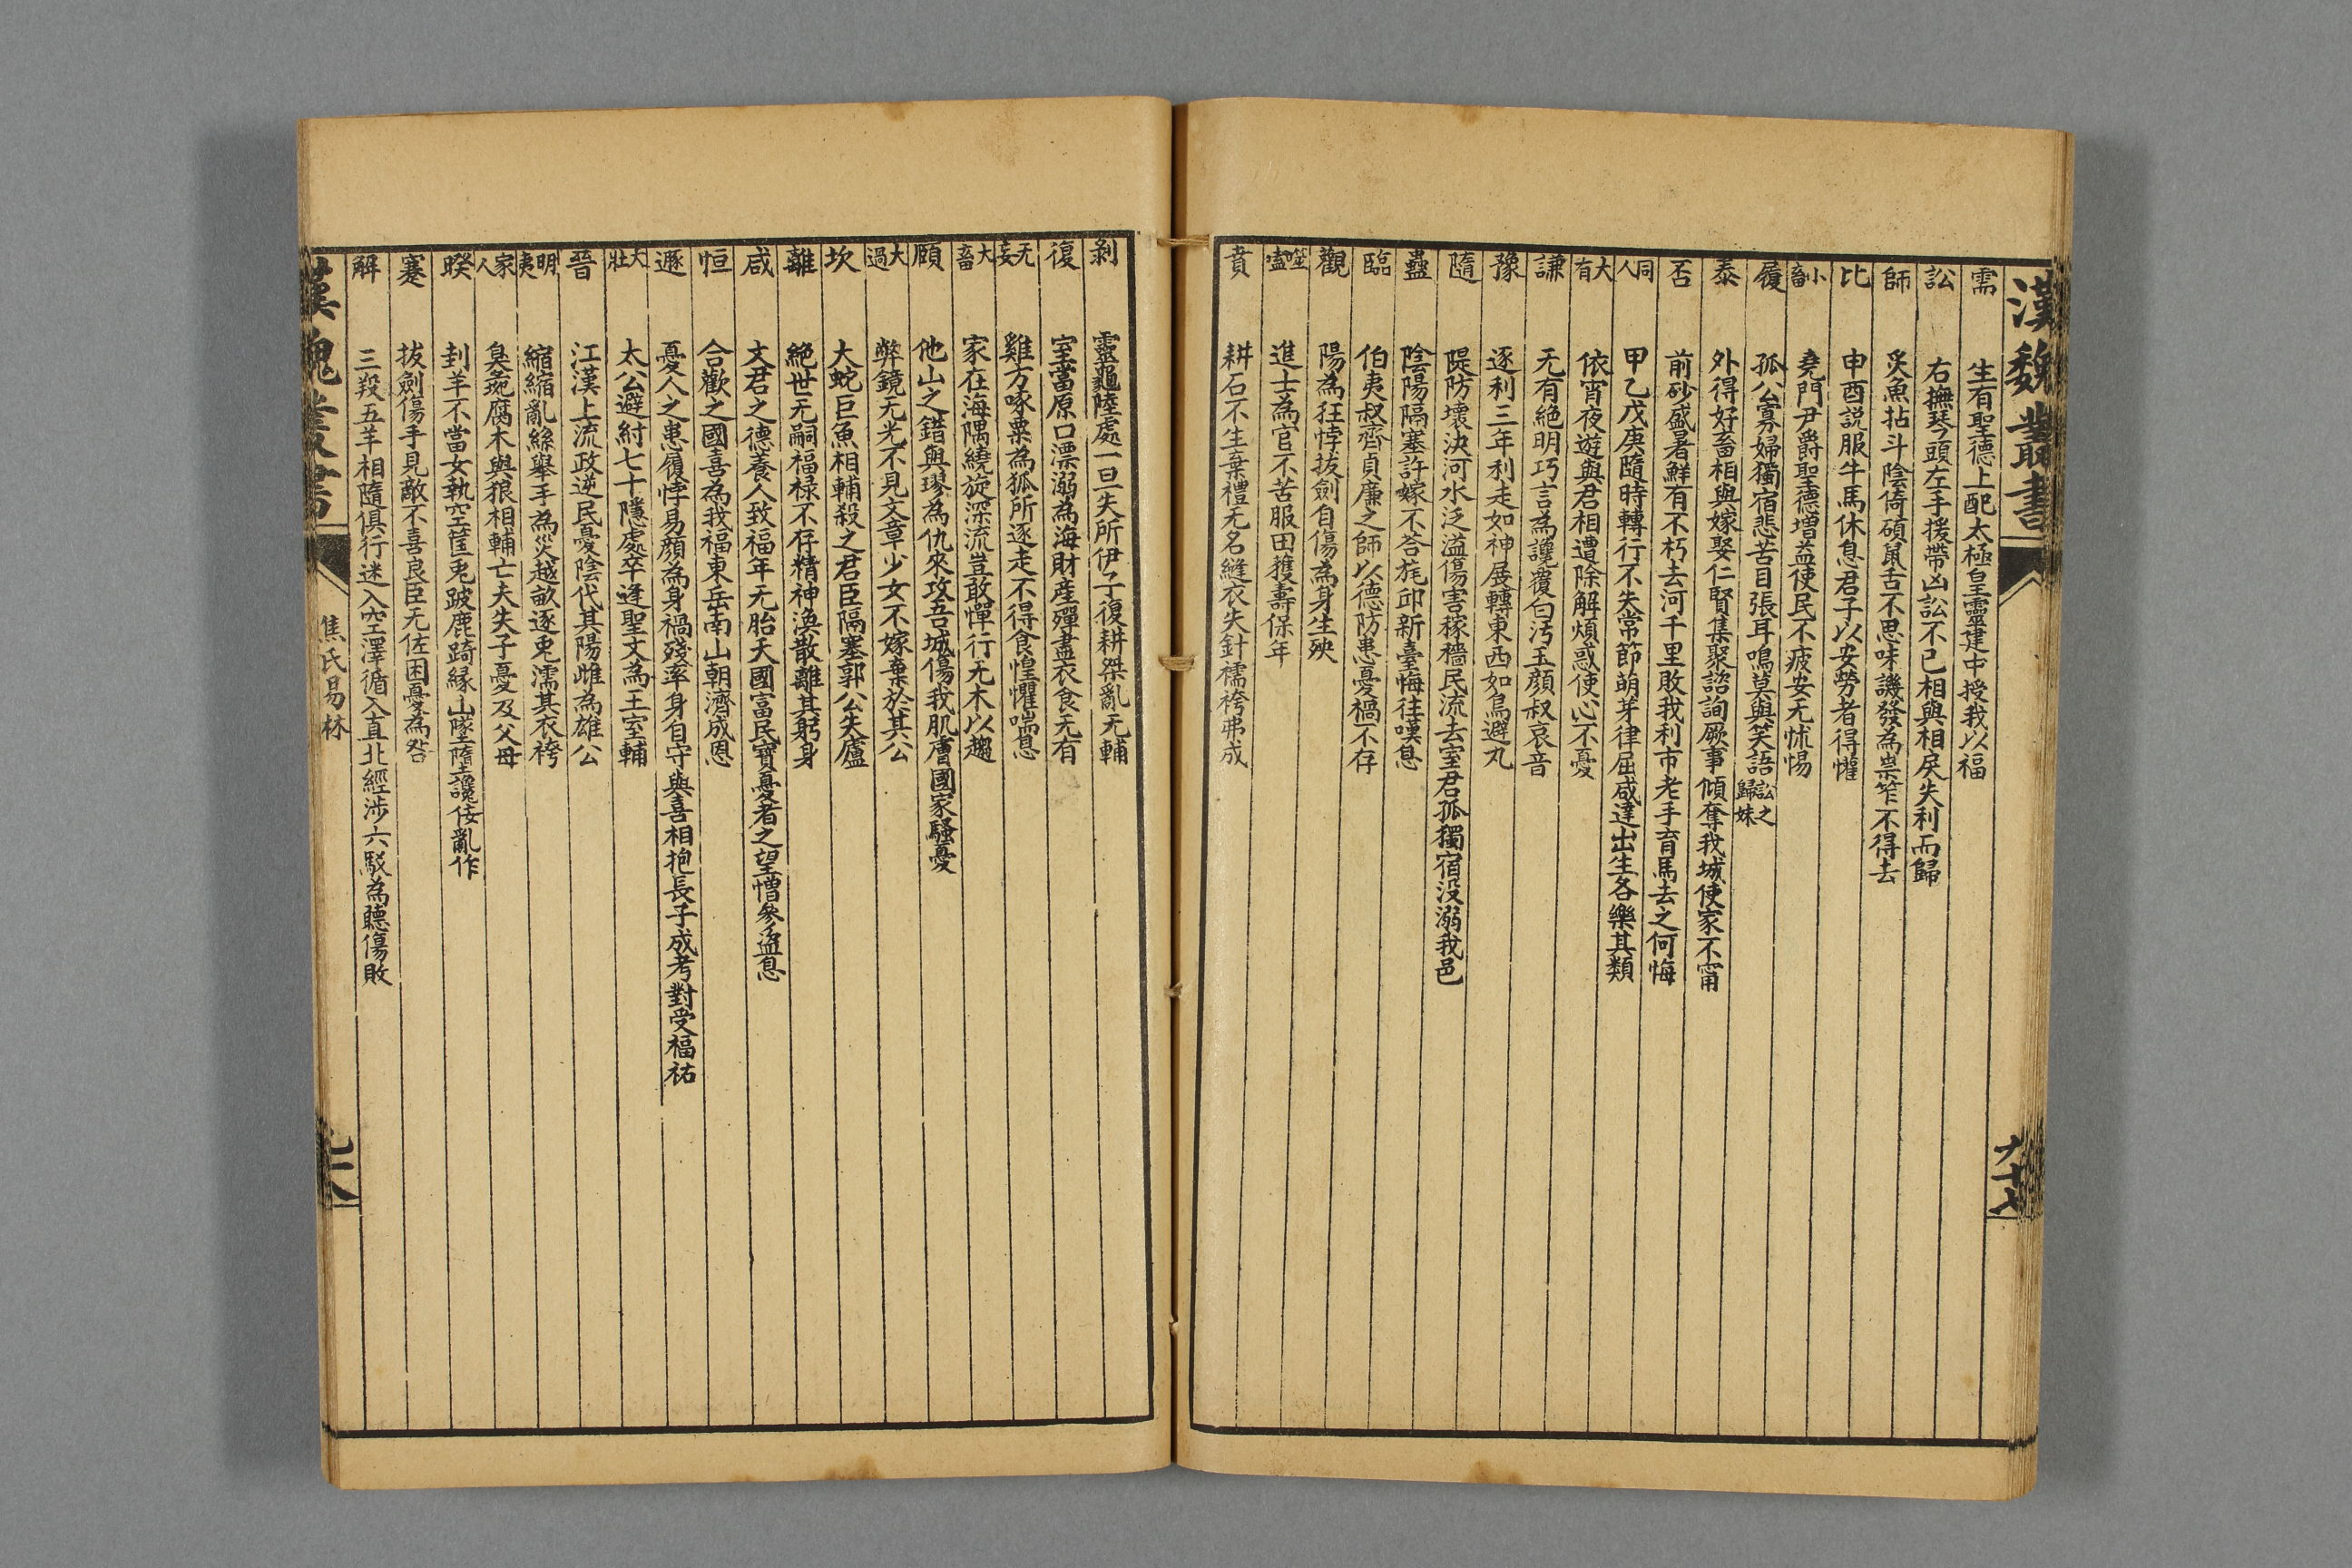 漢魏叢書
九十七
需 生有聖德上配太極皇靈建中授我以福
訟 右撫琴頭左手援帶凶訟不已相與相戾失利而歸
師 炙魚拈斗陰倚碩鼠舌不思味機發為祟笮不得去
比 申酉說服牛馬休息君子以安勞者得懽
小畜 堯門尹爵聖德增益使民不疲安无怵惕
履 孤公寡婦獨宿悲苦目張耳鳴莫與笑語訟之歸妹
泰 外得好畜相與嫁娶仁賢集聚諮詢厥事傾奪我城使家不甯
否 前砂盛暑鮮有不朽去河千里敗我利市老手盲馬去之何悔
同人 甲乙戊庚隨時轉行不失常節萌芽律屈咸達出生各樂其類
大有 依宵夜遊與君相遭除解煩惑使心不憂
謙 无有絶明巧言為讒覆白汚玉顔叔哀音
豫 逐利三年利走如神展轉東西如鳥避丸
隨 隄防壞決河水泛溢傷害稼穡民流去室君孤獨宿没溺我邑
蠱 陰陽隔塞許嫁不荅旄邱新臺悔往嘆息
臨 伯夷叔齊貞廉之師以德防患憂禍不存
觀 陽為狂悖拔劍自傷為身生殃
噬嗑 進士為官不苦服田獲壽保年
賁 耕石不生棄禮无名縫衣失針襦袴弗成
剝 靈龜陸處一旦失所伊子復耕桀亂无輔
復 室當原口漂溺為海財産殫盡衣食无有
无妄 雞方啄粟為狐所逐走不得食惶懼喘息
大畜 家在海隅繞旋深流豈敢憚行无木以趨
頤 他山之錯與璆為仇來攻吾城傷我肌膚國家騷憂
大過 弊鏡无光不見文章少女不嫁棄於其公
坎 大蛇巨魚相輔殺之君臣隔塞郭公失廬
離 絶世无嗣福禄不存精神渙散離其躬身
咸 文君之德養人致福年无胎夭國富民寶憂者之望憎參盜息
恒 合歡之國喜為我福東岳南山朝濟成恩
遯 憂人之患履悖易顔為身禍殘率身自守與喜相抱長子成考對受福祐
大壯 太公避紂七十隱處卒逢聖文為王室輔
晉 江漢上流政逆民憂陰代其陽雌為雄公
明夷 縮縮亂絲舉手為災越畝逐兎濡其衣袴
家人 臭彘腐木與狼相輔亡夫失子憂及父母
暌 封羊不當女執空筐兎跛鹿踦緣山墜墮讒佞亂作
蹇 拔劍傷手見敵不喜良臣无佐困憂為咎
解 三羖五羊相隨俱行迷入空澤循入直北經涉六駁為聽傷敗
漢魏叢書
焦氏易林
九十八